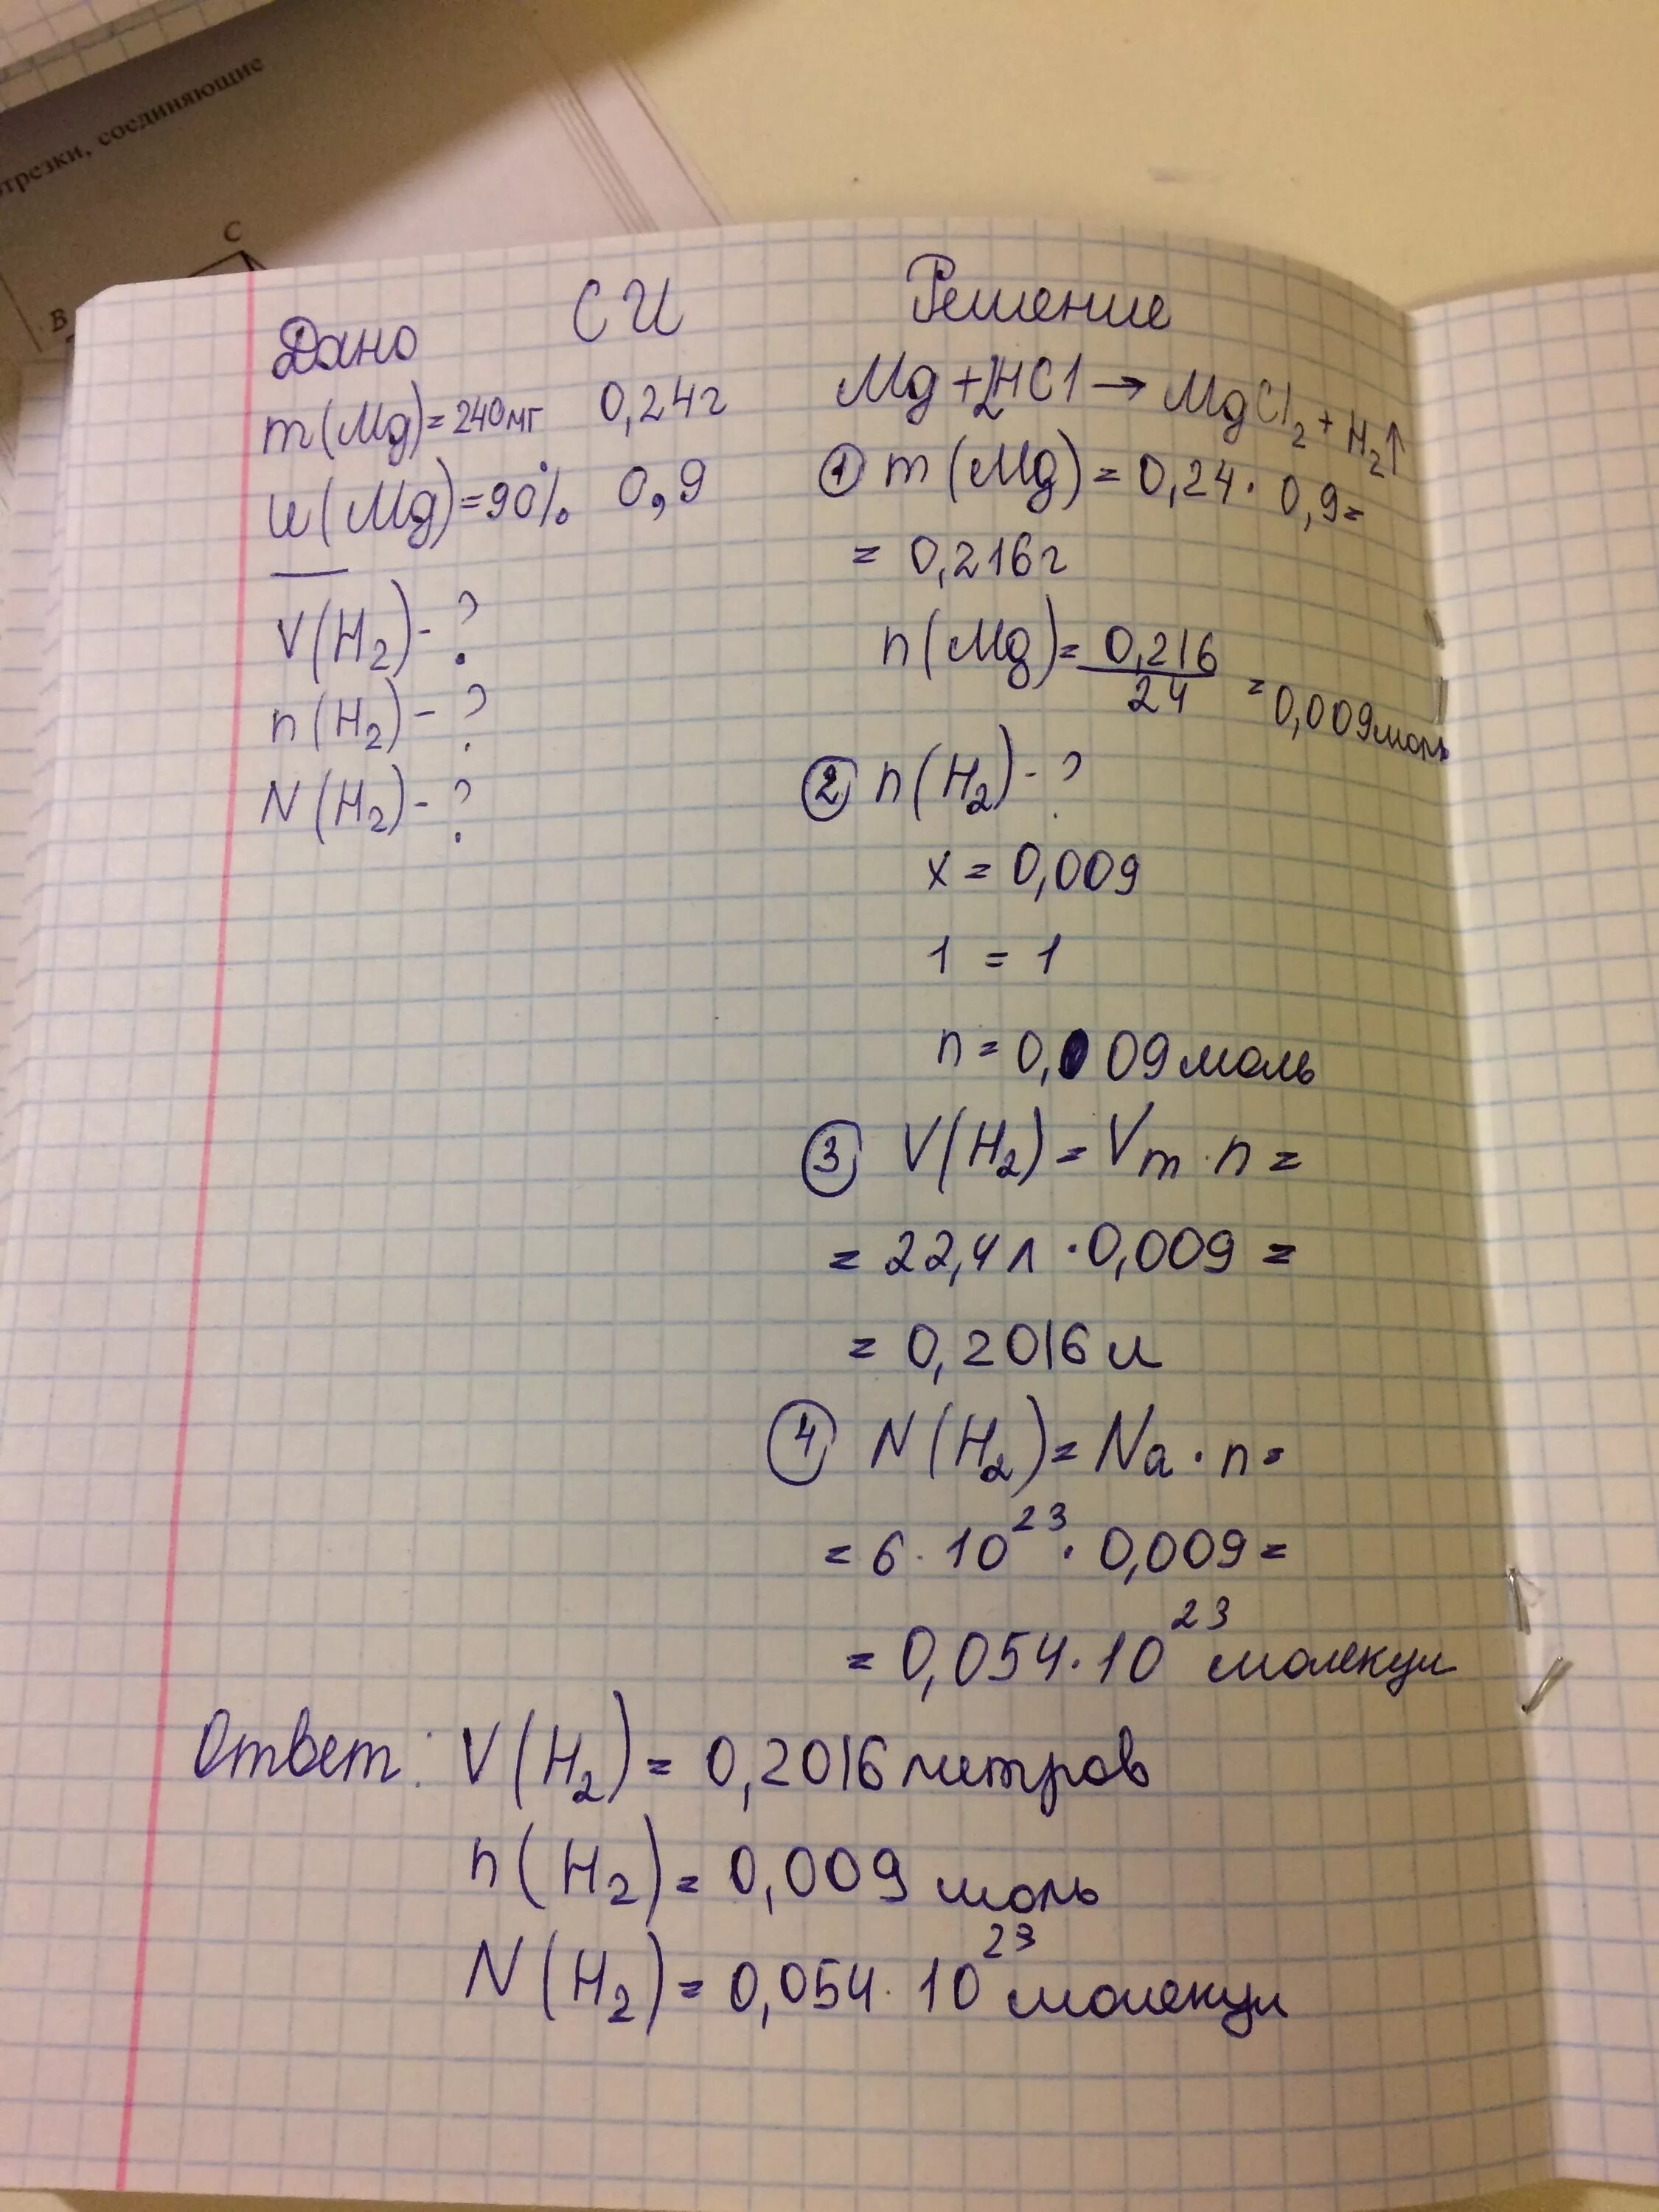 отрезки, соединяющие
C
B
Дано СИ Решение
m(Mg)=240мг 0,24г
w(Mg)=90% 0,9
V(H₂)-?
n(H₂)-?
N(H₂)-?
Mg+2HCl→MgCl₂+H₂↑
① m(Mg)=0,24·0,9=
=0,216г
n(Mg)=0,216/24=0,009моль
② n(H₂)-?
x=0,009
1=1
n=0,009моль
③ V(H₂)=Vm·n=
=22,4л·0,009=
=0,2016л
④ N(H₂)=Na·n=
=6·10²³·0,009=
=0,054·10²³молекул
Ответ: V(H₂)=0,2016литров
n(H₂)=0,009 моль
N(H₂)=0,054·10²³молекул